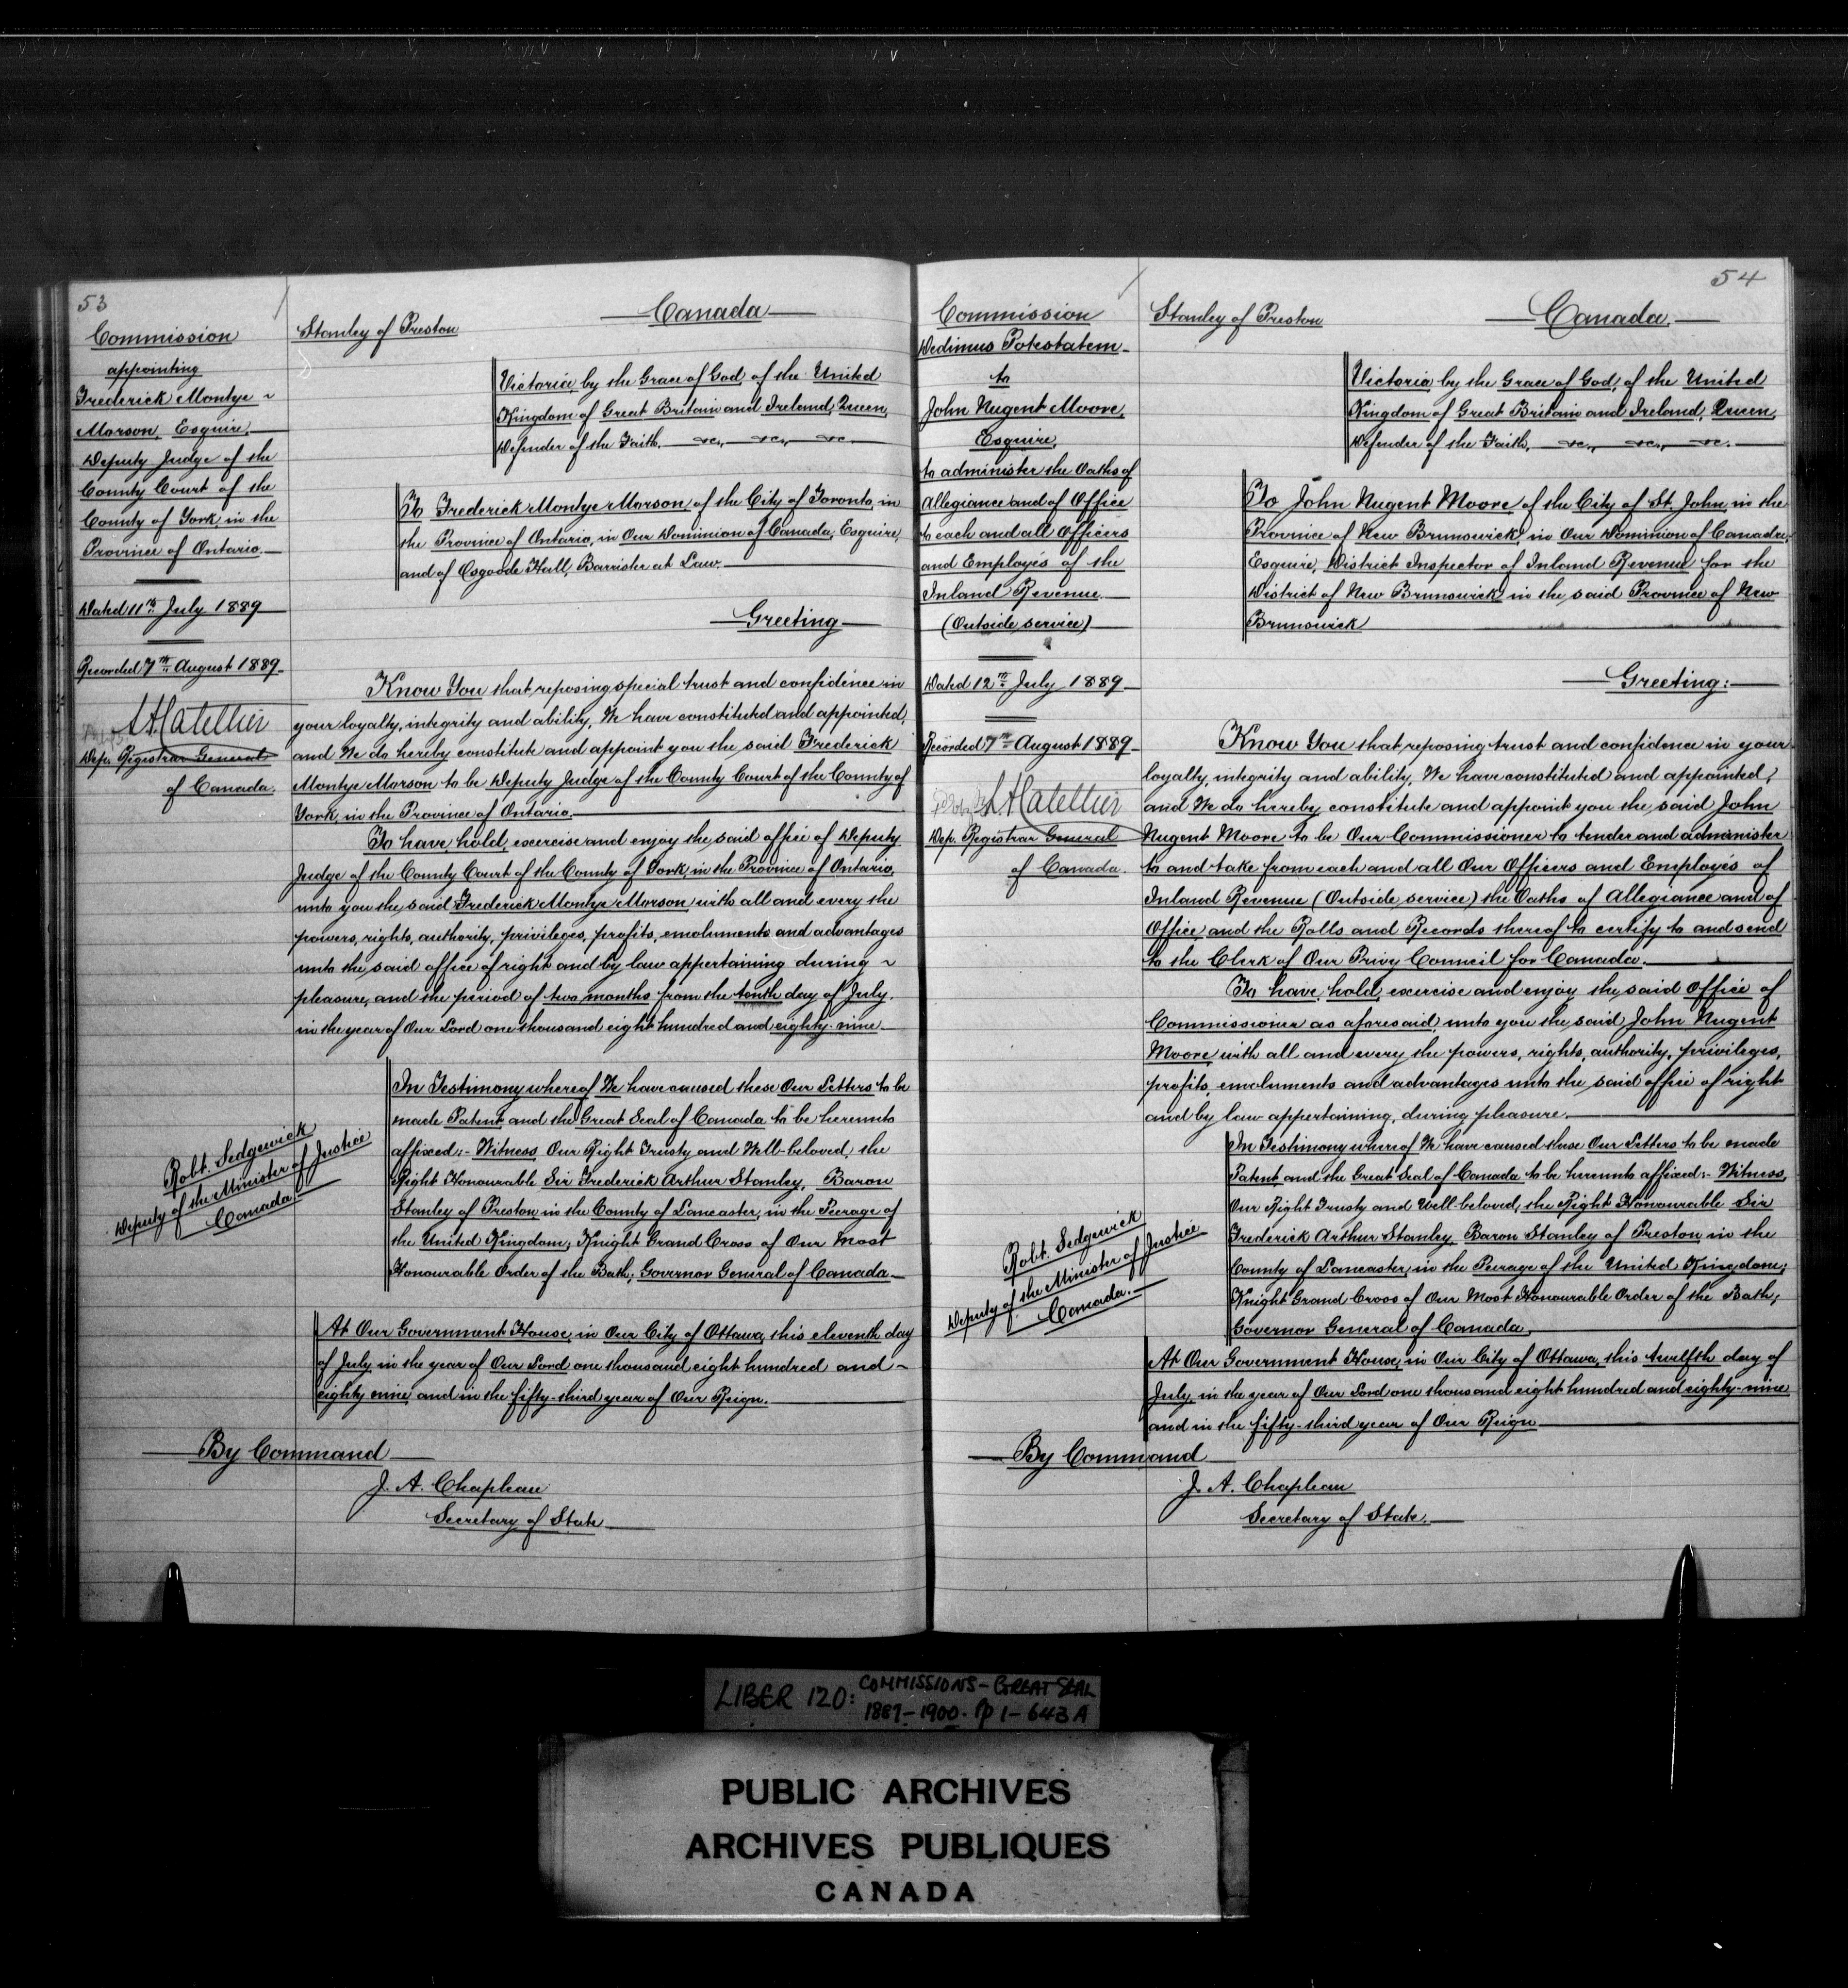 53
Commission
appointing
Frederick Montye ~
Morson, Esquire,
Deputy Judge of the
County Court of the
County of York in the
Province of Ontario.
Dated 11th July 1889
Recorded 7th August 1889
Dep. Registrar General
of Canada.
Robt. Sedgewick
Deputy of the Minister of Justice
Canada.
Stanley of Preston
Canada
Victoria, by the Grace of God, of the United
Kingdom of Great Britain and Ireland, Queen,
Defender of the Faith, &c., &c., &c.
To Frederick Montye Morson, of the City of Toronto, in
the Province of Ontario, in Our Dominion of Canada, Esquire,
and of Osgoode Hall, Barrister at Law.
Greeting
Know You that reposing special trust and confidence in
your loyalty, integrity and ability, We have constituted and appointed,
and We do hereby constitute and appoint you the said Frederick
Montye Morson to be Deputy Judge of the County Court of the County of
York, in the Province of Ontario.
To have, hold, exercise and enjoy the said office of Deputy
Judge of the County Court of the County of York, in the Province of Ontario,
unto you the said Frederick Montye Morson with all and every the
powers, rights, authority, privileges, profits, emoluments and advantages
unto the said office of right and by law appertaining during ~
pleasure, and the period of two months from the tenth day of July,
in the year of Our Lord one thousand eight hundred and eighty-nine.
In Testimony whereof We have caused these Our Letters to be
made Patent and the Great Seal of Canada to be hereunto
affixed:- Witness, Our Right Trusty and Well-beloved, the
Right Honourable Sir Frederick Arthur Stanley, Baron
Stanley of Preston in the County of Lancaster, in the Peerage of
the United Kingdom; Knight Grand Cross of Our Most
Honourable Order of the Bath; Governor General of Canada
At Our Government House, in Our City of Ottawa, this eleventh day
of July, in the year of Our Lord one thousand eight hundred and ~
eighty nine, and in the fifty-third year of Our Reign.
By Command
J. A. Chapleau
Secretary of State
54
Commission
Dedimus Potestatem
to
John Nugent Moore,
Esquire,
to administer the Oaths of
Allegiance and of Office
to each and all Officers
and Employés of the
Inland Revenue.
(Outside service)
Dated 12th July 1889
Recorded 7th August 1889
Dep. Registrar General
of Canada.
Robt. Sedgewick
Deputy of the Minister of Justice
Canada.
Stanley of Preston
Canada.
Victoria, by the Grace of God, of the United
Kingdom of Great Britain and Ireland, Queen,
Defender of the Faith, &c., &c., &c.
To John Nugent Moore of the City of St. John, in the
Province of New Brunswick, in Our Dominion of Canada,
Esquire, District Inspector of Inland Revenue for the
District of New Brunswick, in the said Province of New
Brunswick
Greeting:
Know You that reposing trust and confidence in your
loyalty, integrity and ability, We have constituted and appointed,
and We do hereby constitute and appoint you the said John
Nugent Moore to be Our Commissioner to tender and administer
to and take from each and all Our Officers and Employés of
Inland Revenue (Outside service) the Oaths of Allegiance and of
Office, and the Rolls and Records thereof to certify to and send
to the Clerk of Our Privy Council for Canada.
To have, hold, exercise and enjoy the said Office of
Commissioner as aforesaid, unto you the said John Nugent
Moore with all and every the powers, rights, authority, privileges,
profits, emoluments and advantages unto the said office of right
and by law appertaining, during pleasure.
In Testimony whereof We have caused these Our Letters to be made
Patent and the Great Seal of Canada to be hereunto affixed:- Witness,
Our Right Trusty and Well-beloved, the Right Honourable Sir
Frederick Arthur Stanley, Baron Stanley of Preston in the
County of Lancaster, in the Peerage of the United Kingdom;
Knight Grand Cross of Our Most Honourable Order of the Bath;
Governor General of Canada.
At Our Government House, in Our City of Ottawa, this twelfth day of
July, in the year of Our Lord one thousand eight hundred and eighty-nine
and in the fifty-third year of Our Reign
By Command
J. A. Chapleau
Secretary of State.
LIBER 120: COMMISSIONS - GREAT SEAL
1889-1900. Pp 1-643A
PUBLIC ARCHIVES
ARCHIVES PUBLIQUES
CANADA